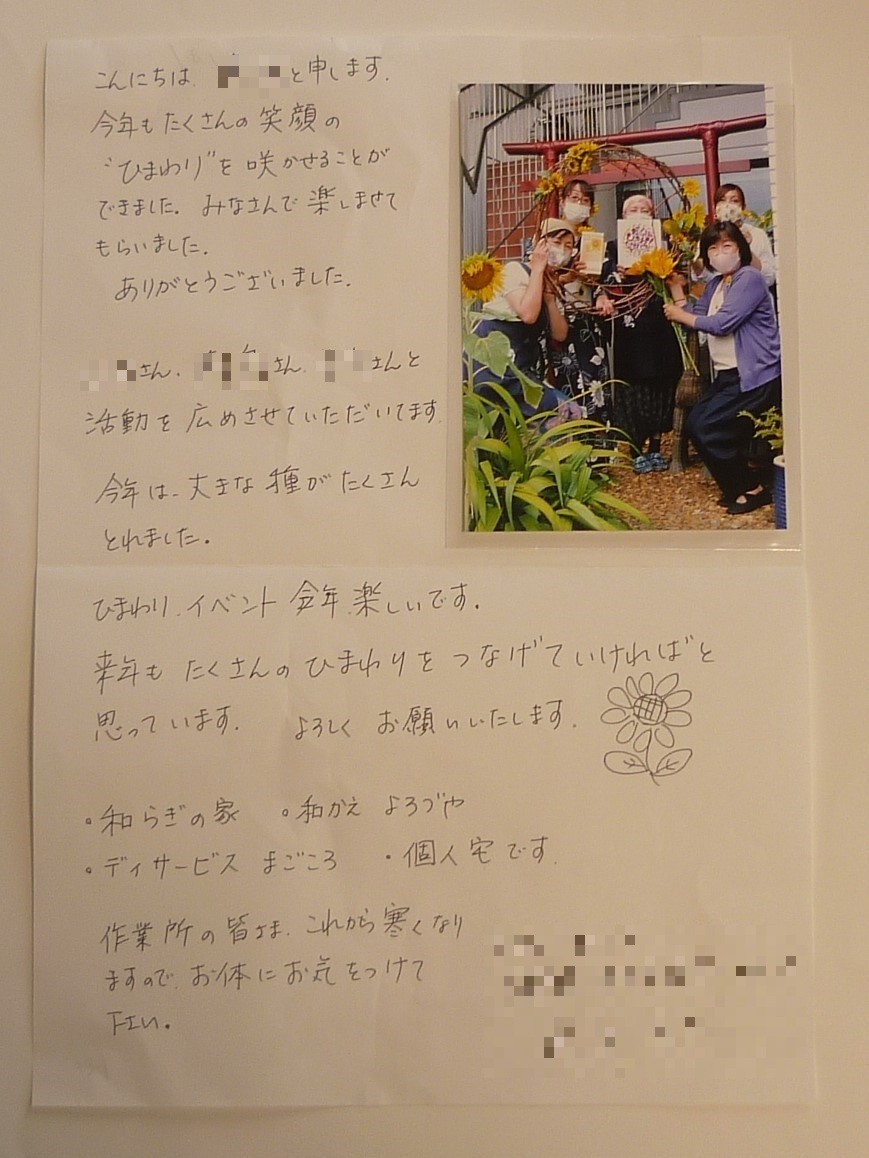 こんにちは と申します.
今年も たくさんの 笑顔の
"ひまわり"を 咲かせることが
できました. みなさんで 楽しませて
もらいました.
ありがとうございました.
さん. さん. さんと
活動を 広めさせていただいてます.
今年は、大きな 種が たくさん
とれました.
ひまわり.イベント 今年.楽しいです.
来年も たくさんの ひまわりを つなげていければと
思っています. よろしく お願いいたします.
・和らぎの家 ・和かえ よろづや
・ディサービス まごころ ・個人宅です.
作業所の皆さま. これから寒くなり
ますので. お体に お気をつけて
下さい.